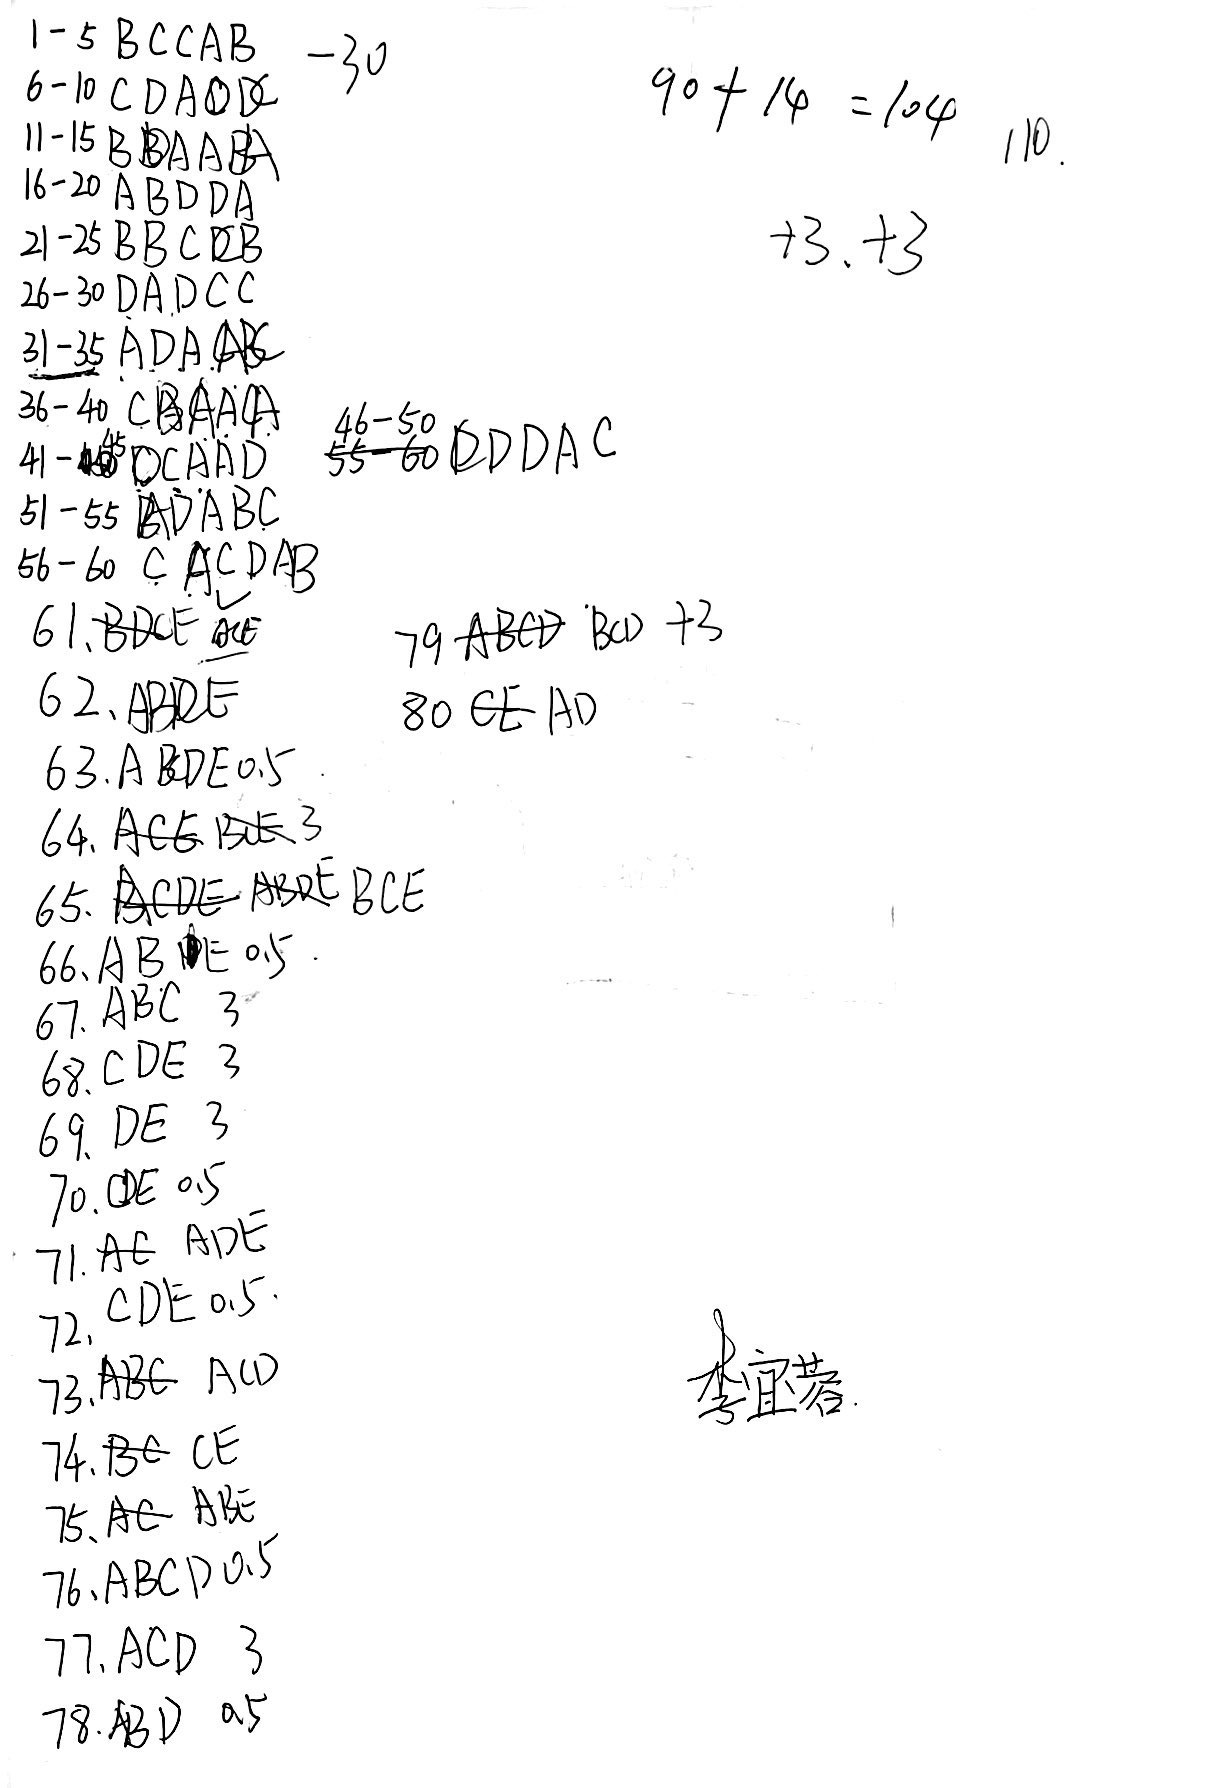 1-5 BCCAB -30
6-10 CDA
90+14=104
110.
11-15 B
16-20 ABDDA
+3. +3
21-25 BBC
26-30 DADCC
31-35 ADA
36-40 C
46-50
41-45 CAAD
55-60 DDAC
51-55 DABC
56-60 C ACDAB
61. BDCE ACE
79 ABCD BCD +3
62. ABDE
80 CE AD
63. ABDE 0.5
64. ACE BCE 3
65. ACDE ABDE BCE
66. AB E 0.5.
67. ABC 3
68. CDE 3
69. DE 3
70. DE 0.5
71. AC ADE
72. CDE 0.5.
73. ABC ACD
74. BC CE
75. AC ABE
76. ABCD 0.5
77. ACD 3
78. ABD 0.5
李宜蓉.